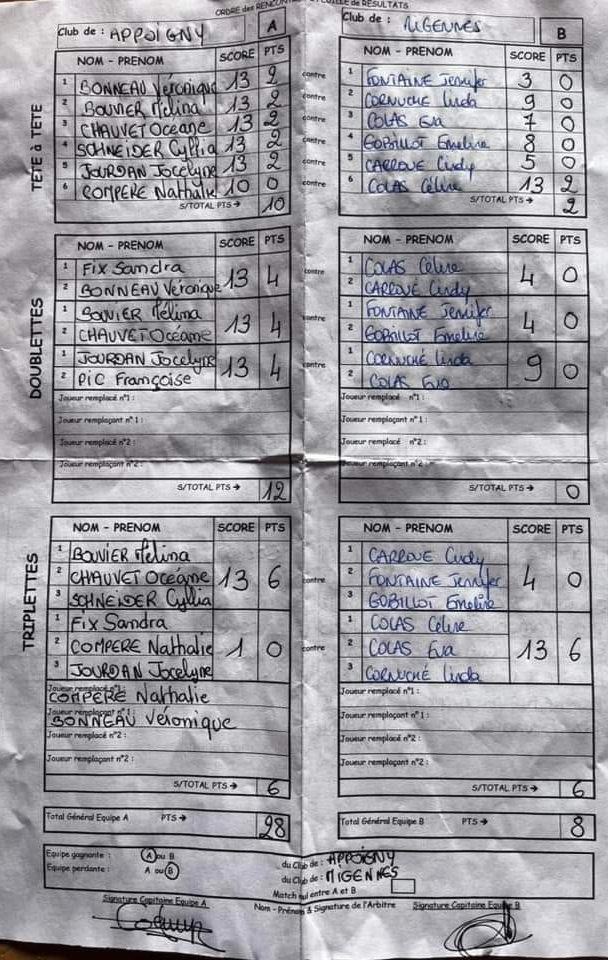 ORDRE des RENCONTRES et FEUILLE de RESULTATS
Club de : APPOIGNY A
Club de : MIGENNES B
TÊTE à TÊTE
NOM - PRENOM SCORE PTS
1 BONNEAU Véronique 13 2
2 BOUVIER Mélina 13 2
3 CHAUVET Océane 13 2
4 SCHNEIDER Cyllia 13 2
5 JOURDAN Jocelyne 13 2
6 COMPERE Nathalie 10 0
S/TOTAL PTS → 10
contre
contre
contre
contre
contre
contre
NOM - PRENOM SCORE PTS
1 FONTAINE Jennifer 3 0
2 CORNUCHE Linda 9 0
3 COLAS Eva 7 0
4 GOBILLOT Emeline 8 0
5 CARROUE Cindy 5 0
6 COLAS Céline 13 2
S/TOTAL PTS → 2
DOUBLETTES
NOM - PRENOM SCORE PTS
1 FIX Sandra 13 4
2 BONNEAU Véronique
1 BOUVIER Mélina 13 4
2 CHAUVET Océane
1 JOURDAN Jocelyne 13 4
2 PIC Françoise
Joueur remplacé n°1 :
Joueur remplaçant n°1 :
Joueur remplacé n°2 :
Joueur remplaçant n°2 :
S/TOTAL PTS → 12
contre
contre
contre
NOM - PRENOM SCORE PTS
1 COLAS Céline 4 0
2 CARROUE Cindy
1 FONTAINE Jennifer 4 0
2 GOBILLOT Emeline
1 CORNUCHÉ Linda 9 0
2 COLAS Eva
Joueur remplacé n°1 :
Joueur remplaçant n°1 :
Joueur remplacé n°2 :
Joueur remplaçant n°2
S/TOTAL PTS → 0
TRIPLETTES
NOM - PRENOM SCORE PTS
1 BOUVIER Mélina
2 CHAUVET Océane 13 6
3 SCHNEIDER Cyllia
1 FIX Sandra
2 COMPERE Nathalie 1 0
3 JOURDAN Jocelyne
Joueur remplacé n°1 :
COMPERE Nathalie
Joueur remplaçant n°1 :
BONNEAU Véronique
Joueur remplacé n°2 :
Joueur remplaçant n°2 :
S/TOTAL PTS → 6
contre
contre
NOM - PRENOM SCORE PTS
1 CARROUE Cindy
2 FONTAINE Jennifer 4 0
3 GOBILLOT Emeline
1 COLAS Céline
2 COLAS Eva 13 6
3 CORNUCHÉ Linda
Joueur remplacé n°1 :
Joueur remplaçant n°1 :
Joueur remplacé n°2 :
Joueur remplaçant n°2 :
S/TOTAL PTS → 6
Total Général Equipe A PTS → 28
Total Général Equipe B PTS → 8
Equipe gagnante : A ou B du Club de : APPOIGNY
Equipe perdante : A ou B du Club de : MIGENNES
Match nul entre A et B
Signature Capitaine Equipe A
Nom - Prénom & Signature de l'Arbitre
Signature Capitaine Equipe B